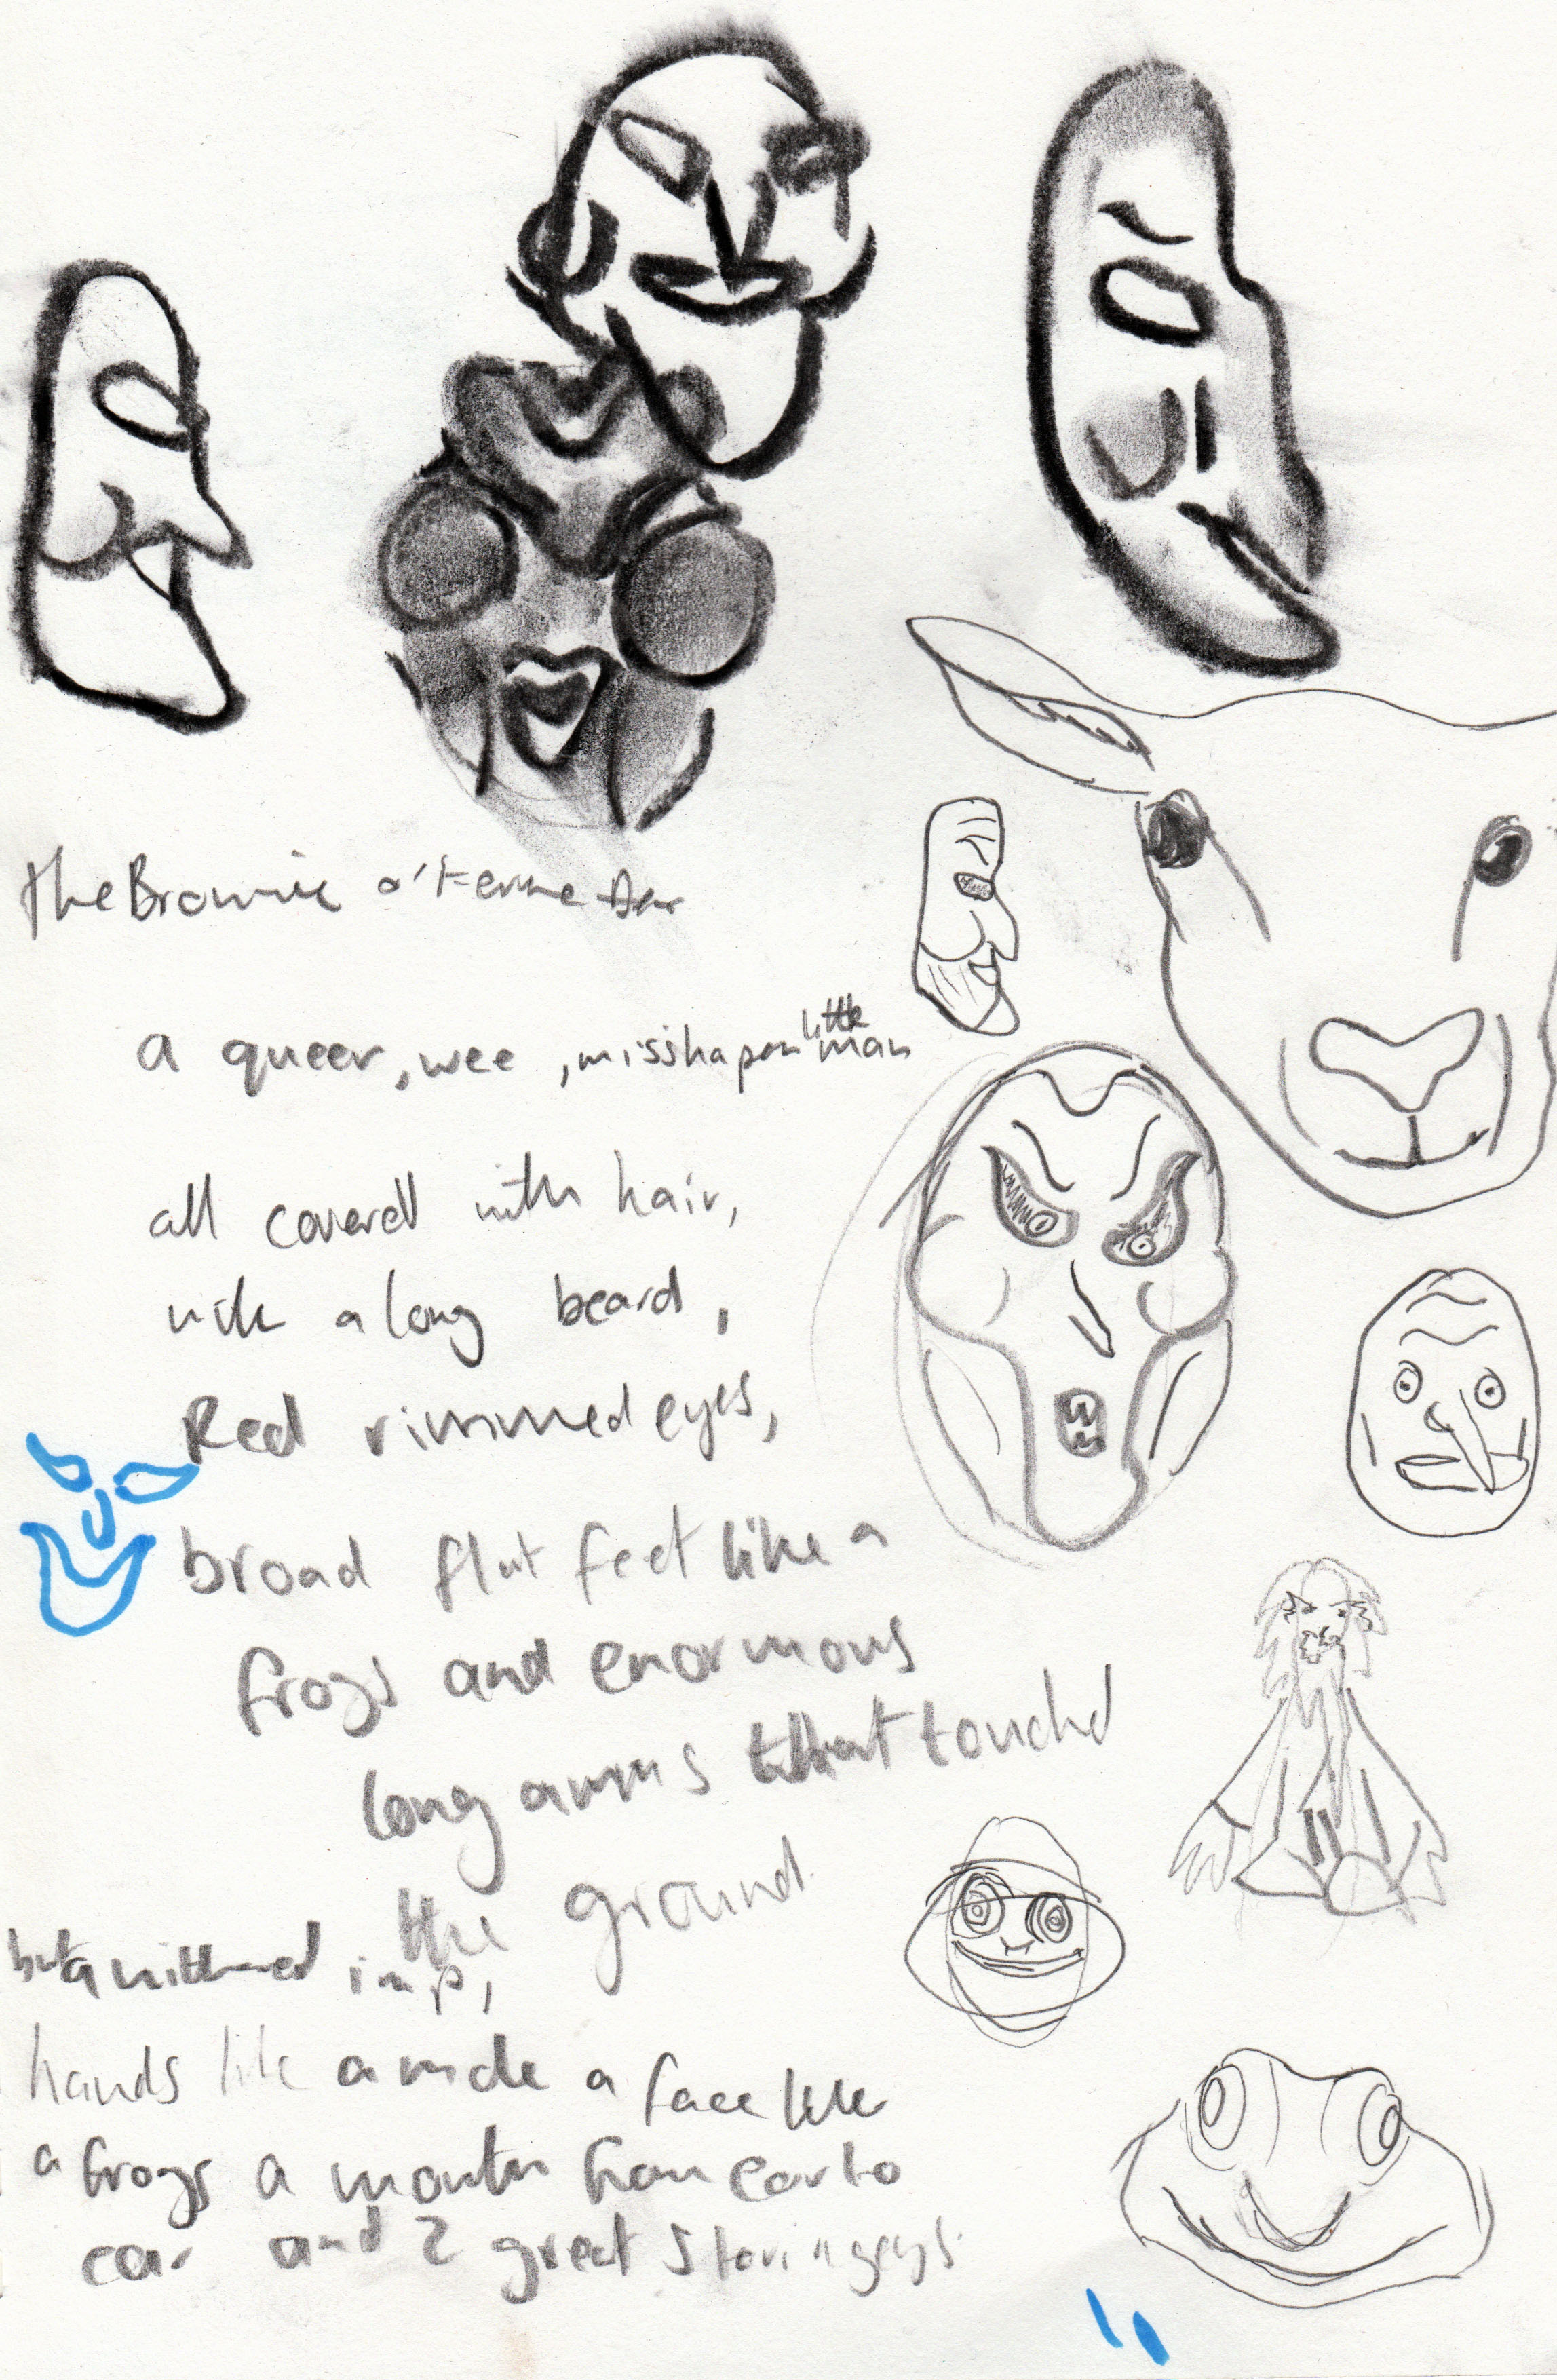 The Brownie o' Ferne Den
a queer, wee, misshapen little man
all covered with hair,
with a long beard,
Red rimmed eyes,
broad flat feet like a
frogs and enormous
long arms that touched
the ground.
but a withered imp,
hands like a a face like
a frogs a mouth from ear to
ear and 2 great staring eyes.